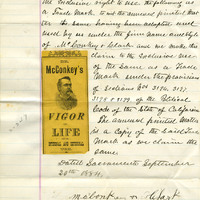 the exclusive right to use the following as
a Trade Mark, to wit the annexed printed Matter
the same having been adopted and
used by us under the firm name and style
of McConkey & Clark and we make the
claim to the exclusive use
of the same as a Trade
Mark under the provisions
of Sections Nos 3196, 3197,
3198 & 3199 of the Political
Code of the State of California
The annexed printed Matter
is a Copy of the said Trade
Mark as we claim the
same.
Dated Sacramento September
28th 1881.
McConkey & Clark
DR.
McConkey's
VIGOR
OF
LIFE